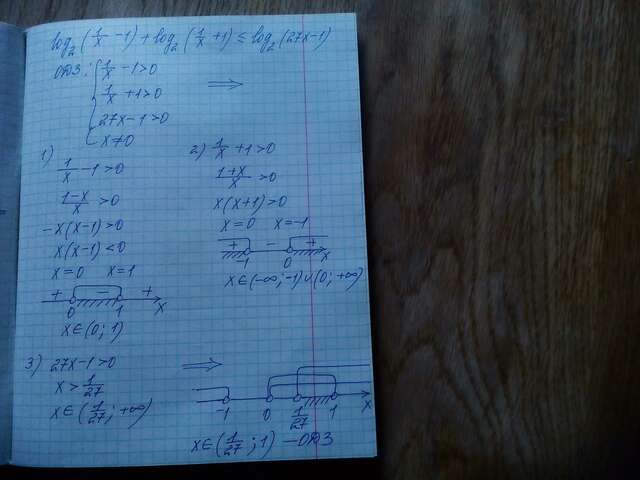 log₂(1/x −1)+log₂(1/x +1)≤log₂(27x−1)
ОДЗ: { 1/x −1>0 ⟹
1/x +1>0
27x−1>0
x≠0
1) 1/x −1>0
(1−x)/x >0
−x(x−1)>0
x(x−1)<0
x=0 x=1
+ − +
0 1 x
x∈(0; 1)
2) 1/x +1>0
(1+x)/x >0
x(x+1)>0
x=0 x=−1
+ − +
−1 0 x
x∈(−∞;−1)∪(0; +∞)
3) 27x−1>0 ⟹
x>1/27
x∈(1/27; +∞)
−1 0 1/27 1 x
x∈(1/27; 1) −ОДЗ